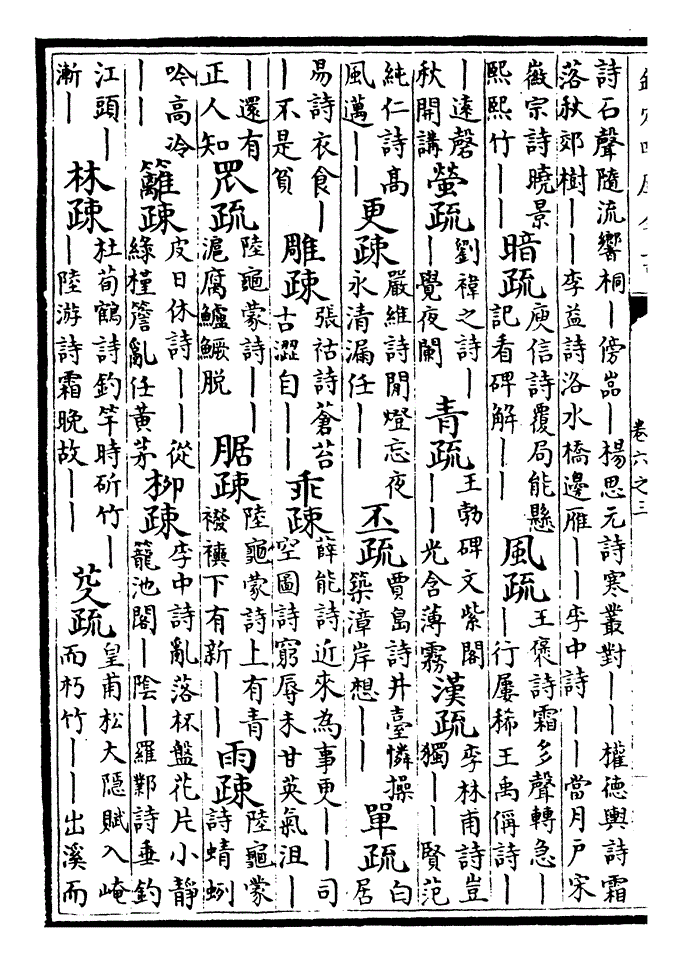 欽定四庫全書
卷六之三
詩石聲隨流響桐丨傍嵓丨楊思元詩寒叢對丨丨權德輿詩霜落秋郊樹丨丨李益詩洛水橋邊雁丨丨李中詩丨丨當月戶宋
徽宗詩曉景熙熙竹丨丨暗疏庾信詩覆局能懸記看碑解丨丨風疏王褒詩霜多聲轉急丨丨行屢稀王禹偁詩丨丨
丨遠磬秋開講螢疏劉禕之詩丨丨覺夜闌青疏王勃碑文紫閣丨丨光含薄霧漢疏李林甫詩豈獨丨丨賢范
純仁詩高風邁丨丨更疎嚴維詩閒燈忘夜永清漏任丨丨丕疏賈島詩井臺憐操築漳岸想丨丨單疏白居
易詩衣食丨丨不是貧雕疎張祜詩蒼苔古澀自丨丨乖疎薛能詩近來為事更丨丨司空圖詩窮辱未甘英氣沮丨
丨還有正人知罛疏陸龜蒙詩丨丨滬腐鱸鱖脫腒疎陸龜蒙詩上有青襏襫下有新丨丨雨疎陸龜蒙詩蜻蛚
吟高冷丨丨籬疎皮日休詩丨丨從綠槿簷亂任黃茅柳疎李中詩亂落杯盤花片小靜籠池閣丨陰丨羅鄴詩垂釣
江頭丨漸丨林疎杜荀鶴詩釣竿時斫竹丨丨陸游詩霜晚故丨丨芟疏皇甫松大隱賦入崦而朽竹丨丨出溪而